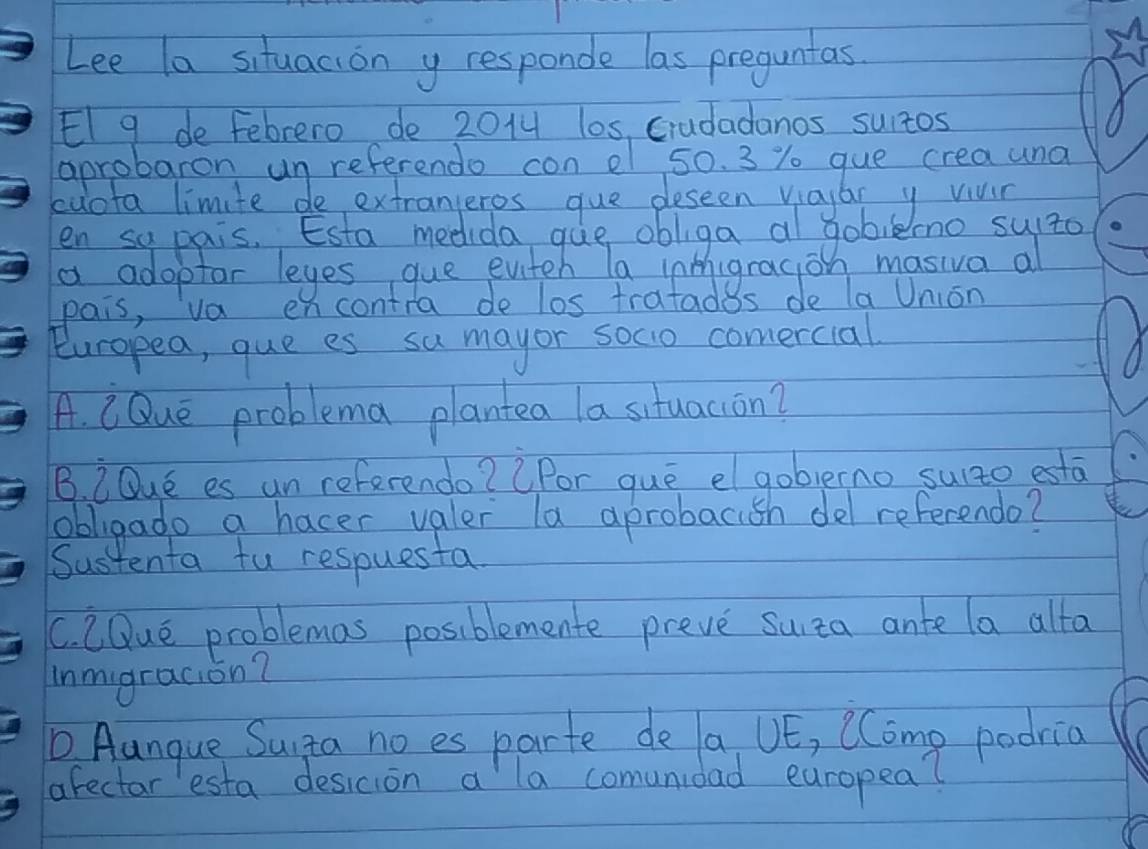 Lee la situación y responde las preguntas.
El 9 de Febrero de 2014 los ciudadanos suizos
aprobaron un referendo con el 50.3% que crea una
cuota límite de extranjeros que deseen viajar y vivir
en su país. Esta medida que obliga al gobierno suizo
a adoptar leyes que eviten la inmigración masiva al
país, va en contra de los tratados de la Unión
Europea, que es su mayor socio comercial.
A. ¿Qué problema plantea la situación?
B. ¿Qué es un referendo? ¿Por qué el gobierno suizo está
obligado a hacer valer la aprobación del referendo?
Sustenta tu respuesta.
C. ¿Qué problemas posiblemente prevé Suiza ante la alta
inmigración?
D. Aunque Suiza no es parte de la UE, ¿Cómo podría
afectar esta desición a la comunidad europea?